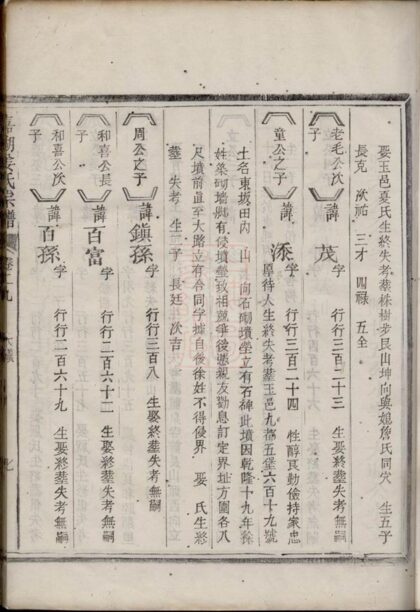 娶玉邑夏氏生終失考葬株樹步艮山坤向與媳詹氏同穴 生五子
長克 次祐 三才 四祿 五全
老毛公次子 諱茂 字 行行三百二十三 生娶終葬失考無嗣
童公之子 諱添 字 行行三百二十四 性醇良勤儉持家忠
厚待人生終失考葬玉邑九都五堡六百十九號
土名東坂田內 山 向石砌墳塋立有石碑此墳因乾隆十九年徐
姓築砌墻腳有侵墳塋致相競爭後憑親友勸息訂定界址方圍各八
尺墳前直至大路立有合同字據自後徐姓不得侵界 娶 氏生終
葬 失考 生二子 長廷 次吉
周公之子 諱鎮孫 字 行行三百八 生娶終葬失考無嗣
和喜公長子 諱百富 字 行行二百六十二 生娶終葬失考無嗣
和喜公次子 諱百孫 字 行行二百六十九 生娶終葬失考無嗣
氏宗譜 卷十九